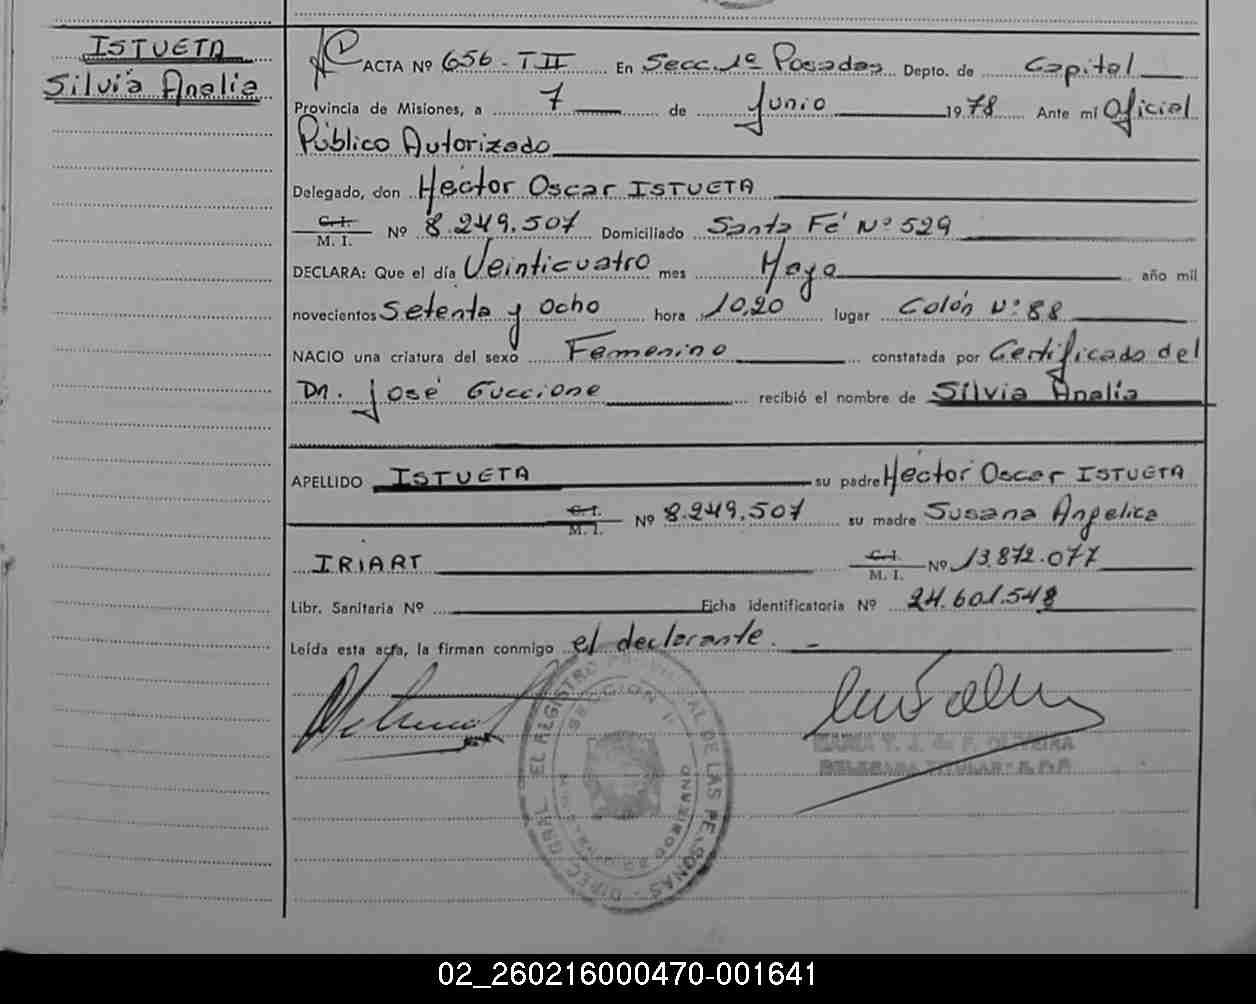 ISTUETA
Silvia Analía
ACTA Nº 656 - T II En Secc. 1º Posadas Depto. de Capital
Provincia de Misiones, a 7 de Junio 1978 Ante mi Oficial
Público Autorizado
Delegado, don Héctor Oscar ISTUETA
C. I.
M. I. Nº 8.249.507 Domiciliado Santa Fé Nº 529
DECLARA: Que el día Veinticuatro mes Mayo año mil
novecientos Setenta y Ocho hora 10,20 lugar Colón Nº 88
NACIO una criatura del sexo Femenino constatada por Certificado del
Dr. José Guccione recibió el nombre de Silvia Analía
APELLIDO ISTUETA su padre Héctor Oscar ISTUETA
C. I.
M. I. Nº 8.249.507 su madre Susana Angelica
IRIART C. I.
M. I. Nº 13.872.077
Libr. Sanitaria Nº Ficha identificatoria Nº 24.601.548
Leída esta acta, la firman conmigo el declarante.
DELEGADA TITULAR
02_260216000470-001641